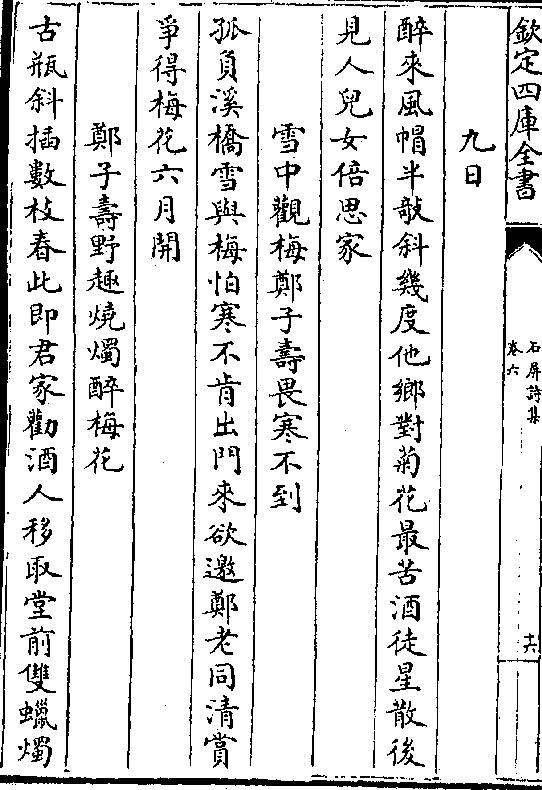 欽定四庫全書
石屏詩集
卷六
十六
九日
醉來風帽半敧斜幾度他鄉對菊花最苦酒徒星散後
見人兒女倍思家
雪中觀梅鄭子壽畏寒不到
孤負溪橋雪與梅怕寒不肯出門來欲邀鄭老同清賞
爭得梅花六月開
鄭子壽野趣燒燭醉梅花
古瓶斜插數枝春此即君家勸酒人移取堂前雙蠟燭